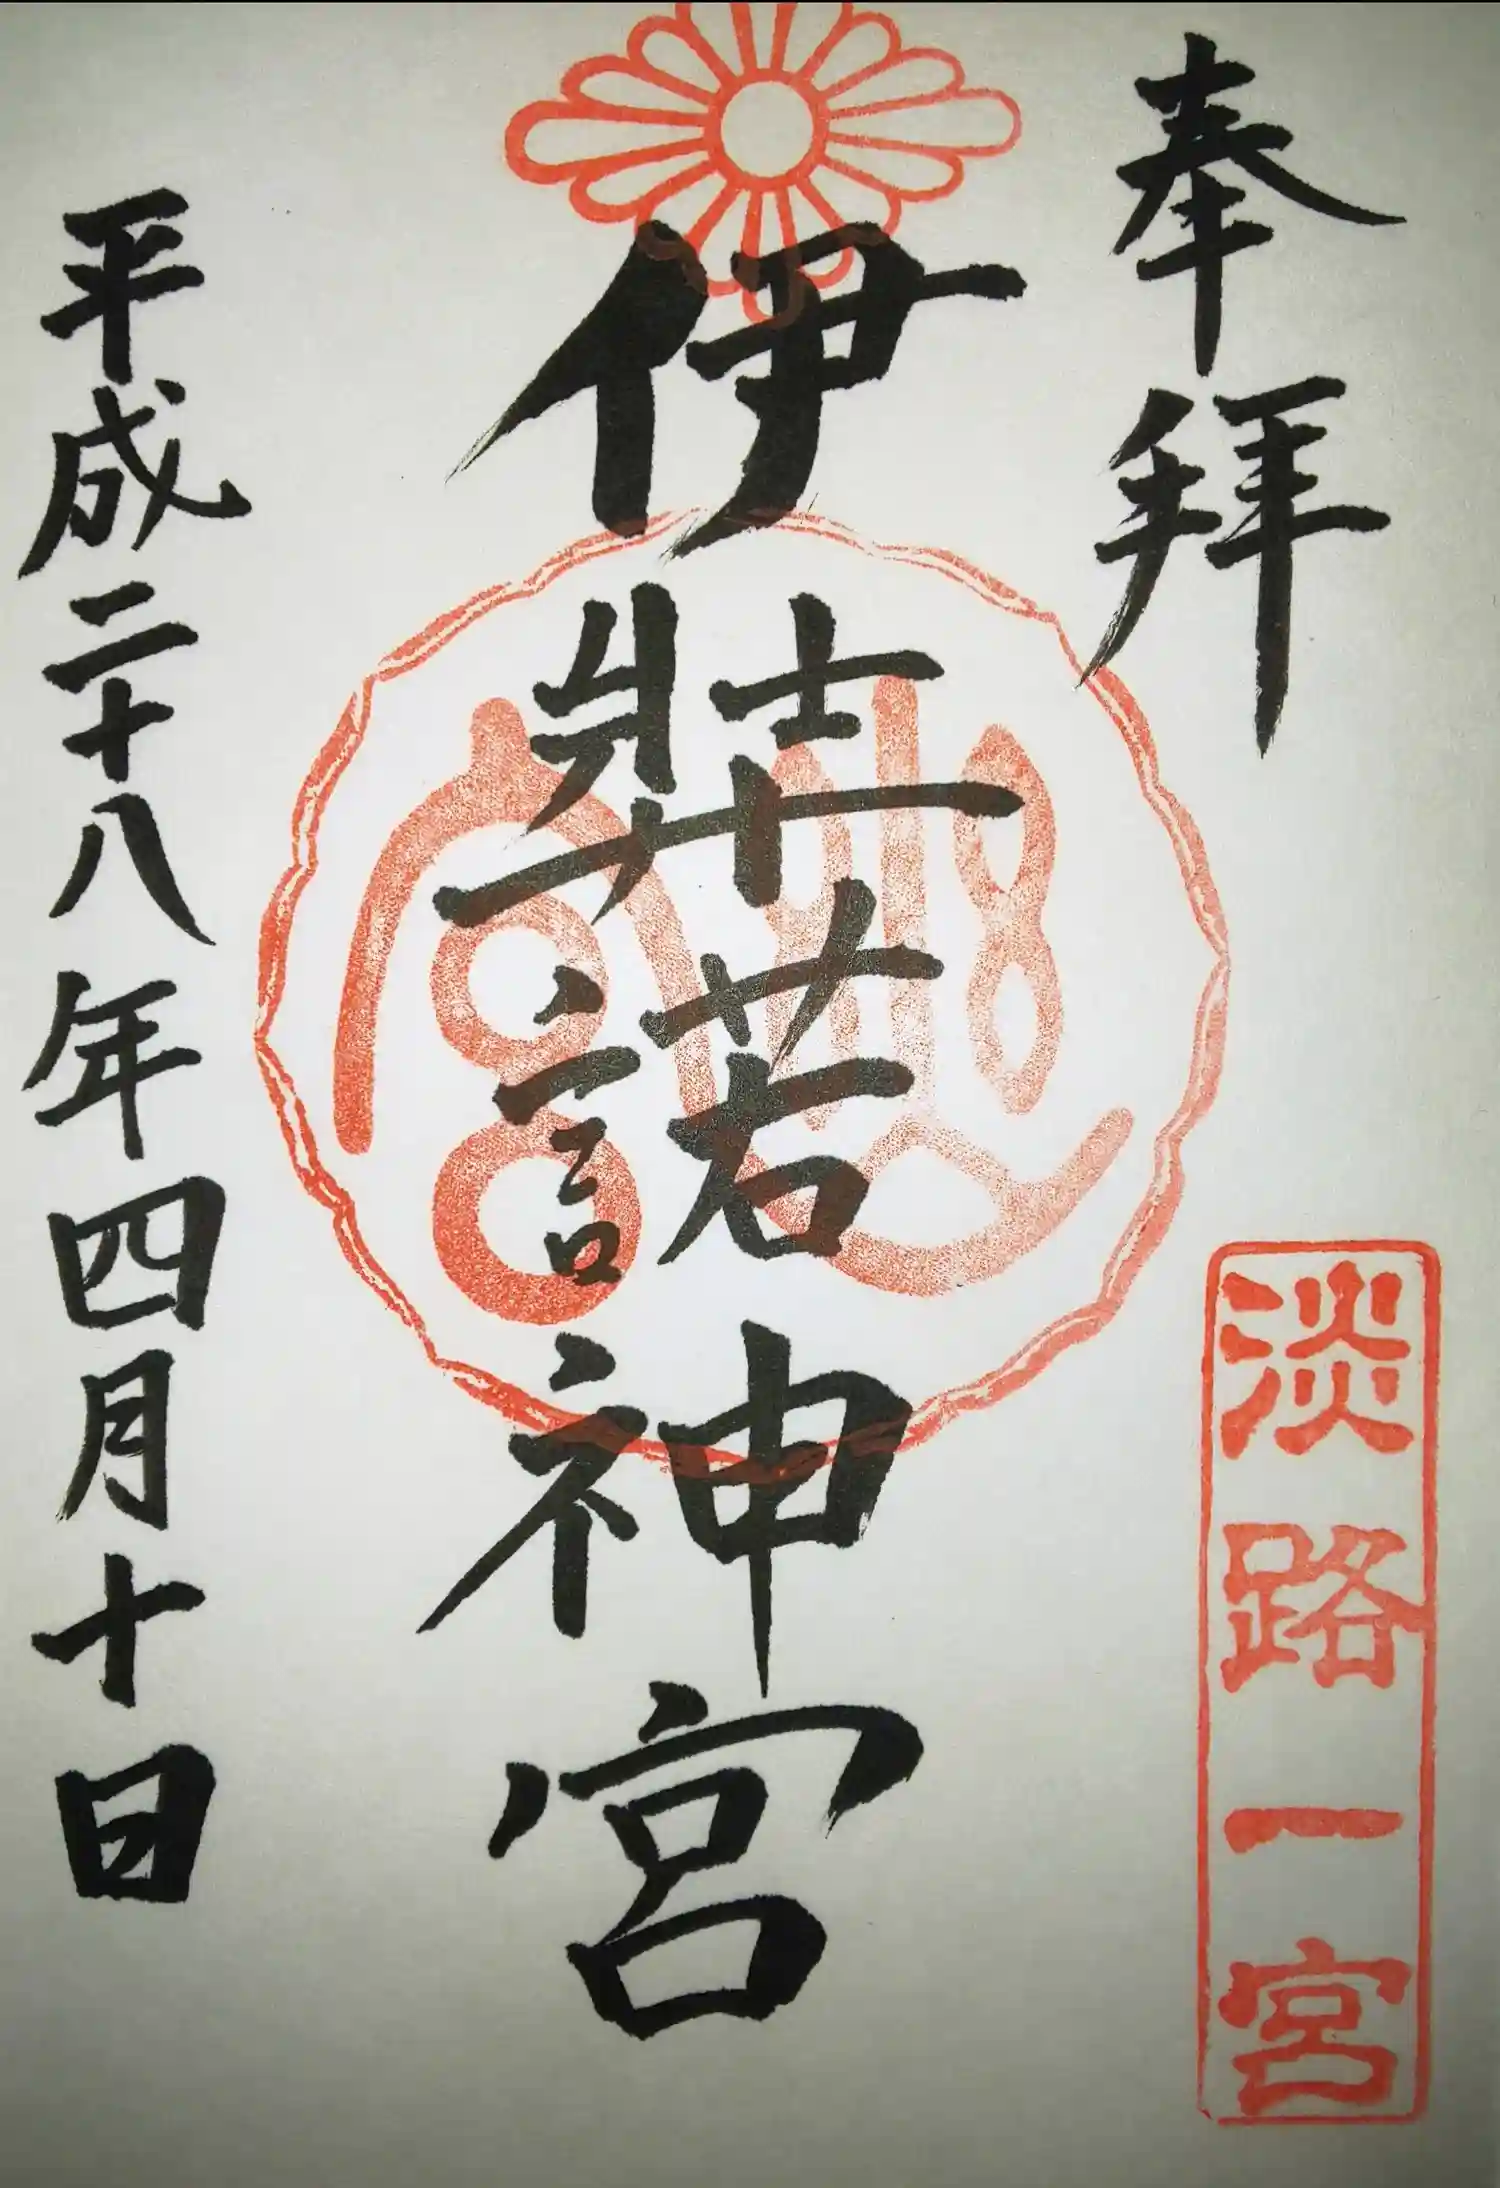 奉拝
淡路一宮
伊弉諾神宮
平成二十八年四月十日